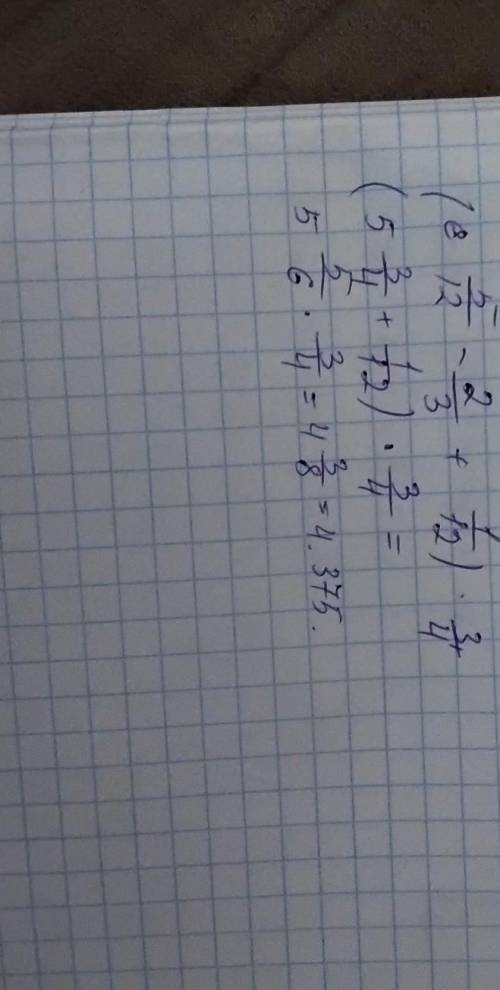 (6 5/12 - 2/3 + 1/12) · 3/4
(5 3/4 + 1/12) · 3/4 =
5 5/6 · 3/4 = 4 3/8 = 4.375.